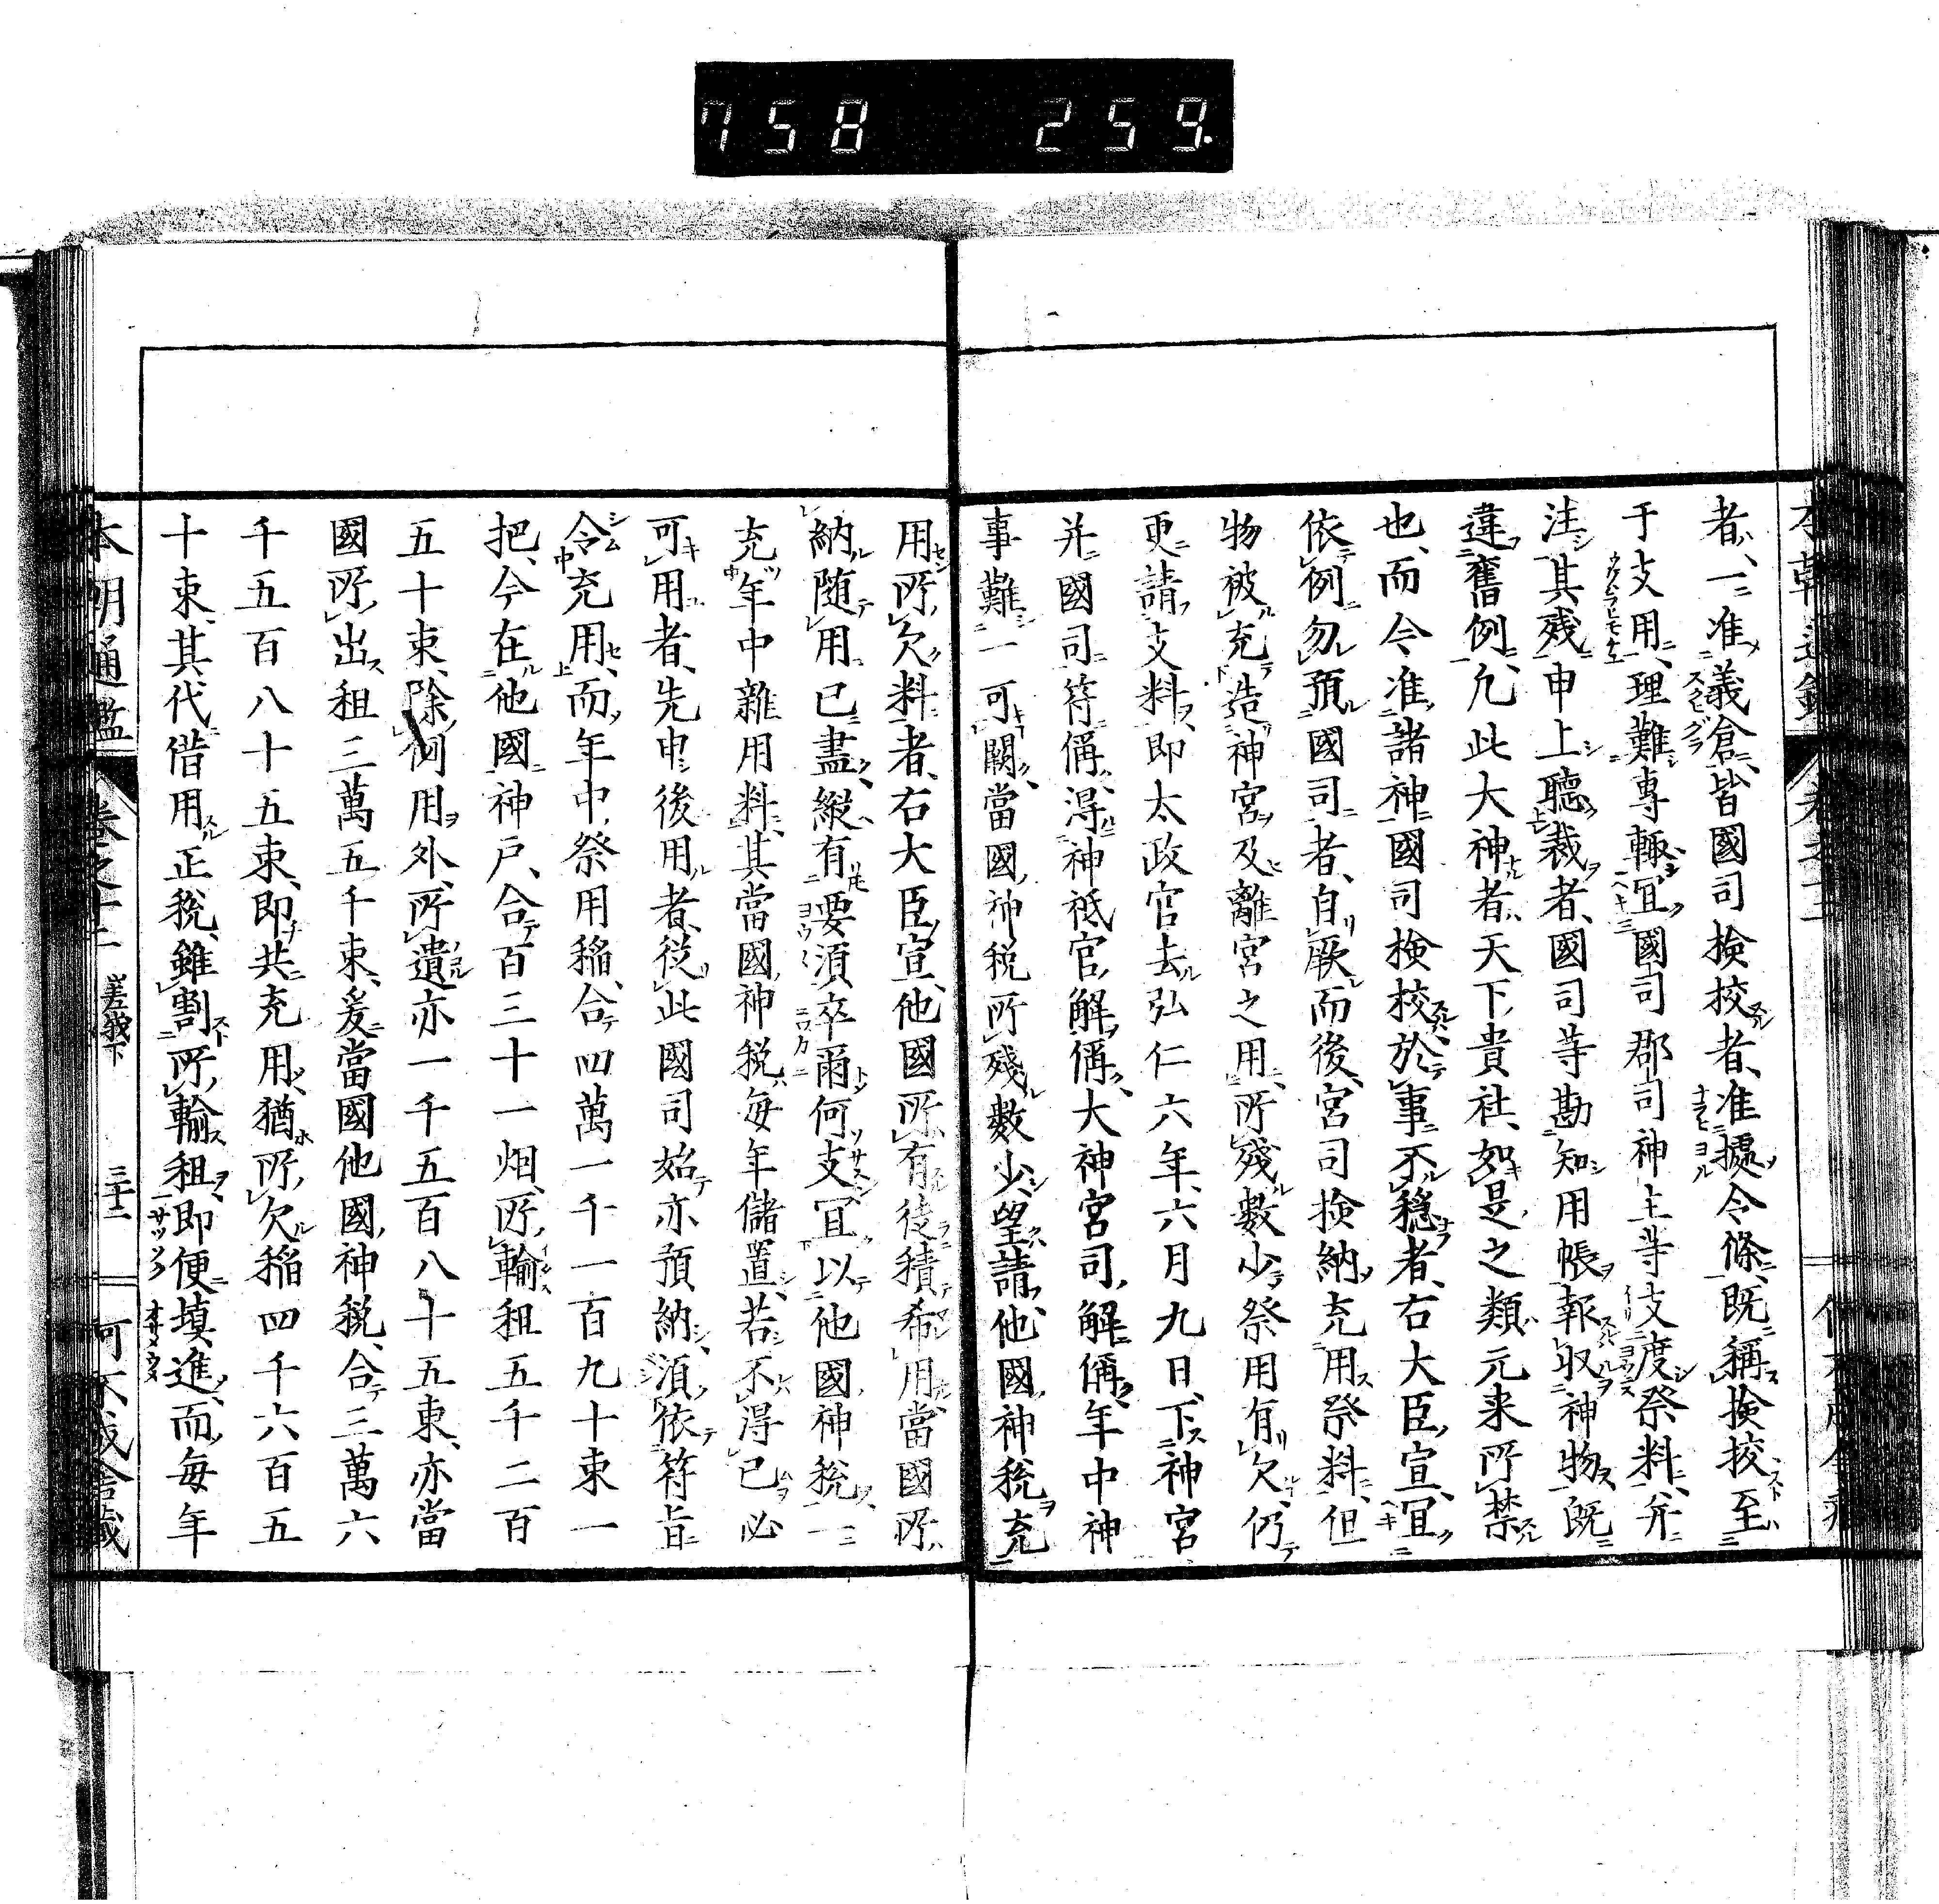 758 259.
者、一准義倉、皆國司撿挍者、准據令條、既稱撿挍、至
于支用、理難專輙、冝國司郡司神主等支度祭料、并
注其残申上聽裁者、國司等勘知用帳、報収神物、既
違舊例、允此大神者、天下貴社、如是之類、元来所禁
也、而今准諸神國司撿挍於事不穏者、右大臣宣、冝
依例勿預國司者、自厥而後、宮司撿納、充用祭料、但
物被充造神宮及離宮之用、所殘數少、祭用有欠、仍
更請支料、即太政官去弘仁六年六月九日、下神宮
并國司符偁、得神祇官解偁、大神宮司解偁、年中神
事難一可闕、當國神税所殘數少、望請他國神税充
用所欠料者、右大臣宣、他國所有徒積希用、當國所
納随用已盡、縱有要湏卒爾何支、冝以他國神税一
充年中雜用料、其當國神税毎年儲置、若不得已必
可用者、先申後用者、從此國司始亦預納、湏依符旨
令充用、而年中祭用稲、合四萬一千一百九十束一
把、今在他國神戸、合百三十一烟、所輸租五千二百
五十束、除例用外、所遺亦一千五百八十五束、亦當
國所出租三萬五千束、爰當國他國神税、合三萬六
千五百八十五束、即共充用、猶所欠稲四千六百五
十束、其代借用正税、雖割所輸租即便填進、而毎年
本朝通鑑 卷之十二 嵯峨下 三十二